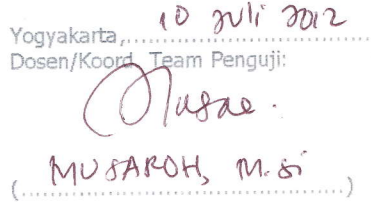 Yogyakarta, 10 Juli 2012
Dosen/Koord. Team Penguji:
Musar.
(MUSAROH, M.Si)